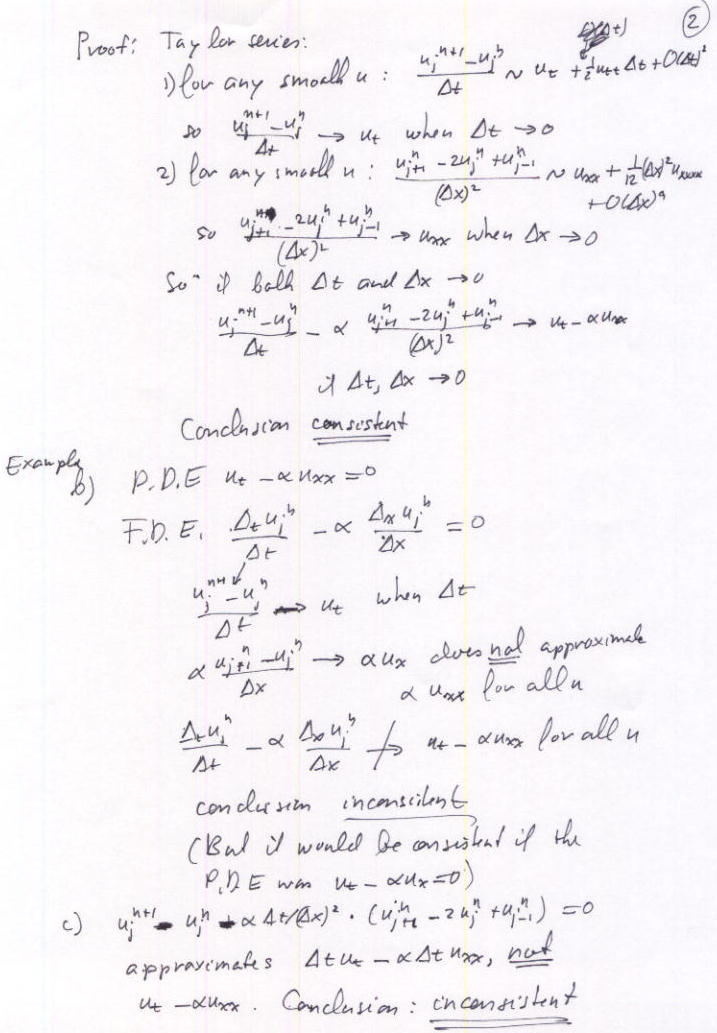 ②
Proof: Taylor series:
1) for any smooth u : (u_j^{n+1} - u_j^n)/Δt ~ u_t + ½ u_tt Δt + O(Δt)²
so (u_j^{n+1} - u_j^n)/Δt → u_t when Δt → 0
2) for any smooth u : (u_{j+1}^n - 2u_j^n + u_{j-1}^n)/(Δx)² ~ u_xx + 1/12 (Δx)² u_xxxx
+ O(Δx)⁴
so (u_{j+1}^n - 2u_j^n + u_{j-1}^n)/(Δx)² → u_xx when Δx → 0
So if both Δt and Δx → 0
(u_j^{n+1} - u_j^n)/Δt - α (u_{j+1}^n - 2u_j^n + u_{j-1}^n)/(Δx)² → u_t - αu_xx
if Δt, Δx → 0
Conclusion consistent
Example
b) P.D.E u_t - αu_xx = 0
F.D.E. Δ_t u_j^n/Δt - α Δ_x u_j^n/Δx = 0
(u_j^{n+1} - u_j^n)/Δt → u_t when Δt
α (u_{j+1}^n - u_j^n)/Δx → αu_x does not approximate
αu_xx for all u
Δ_t u_j^n/Δt - α Δ_x u_j^n/Δx ↛ u_t - αu_xx for all u
conclusion inconsistent
(But it would be consistent if the
P.D.E was u_t - αu_x = 0)
c) u_j^{n+1} - u_j^n - α Δt/(Δx)² · (u_{j+1}^n - 2u_j^n + u_{j-1}^n) = 0
approximates Δt u_t - αΔt u_xx, not
u_t - αu_xx. Conclusion : inconsistent